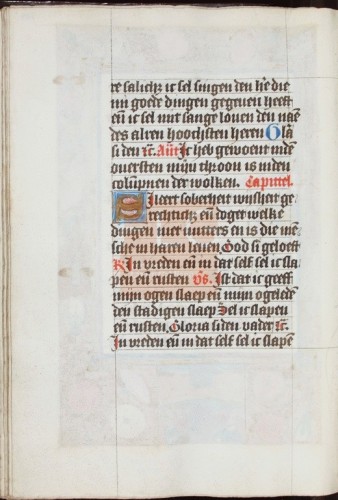 re salich; ic sel singen den h̄e die
mi goede dingen gegeuen heeft
en̄ ic sel mit sange louen den naē
des alren hoochsten heren Gl̄a
si den ⁊c̄. Ant̄ Ic heb gewoent inde
ouersten mijn throon is inden
columpnen der wolken. Capittel.
leert soberheit wijsheit ge
rechtich; en̄ doget welke
dingen niet nutters en is die mē
sche in haren leuen God si geloeft
R̄ In vreden en̄ in dat self sel ic sla
pen en̄ rusten v̄s. Ist dat ic gheef
mijn ogen slaep en̄ mijn ogelede
den stadigen slaep Sel ic slapen
en̄ rusten. Gloria si den vader ⁊c̄.
In vreden en̄ in dat self sel ic slapē